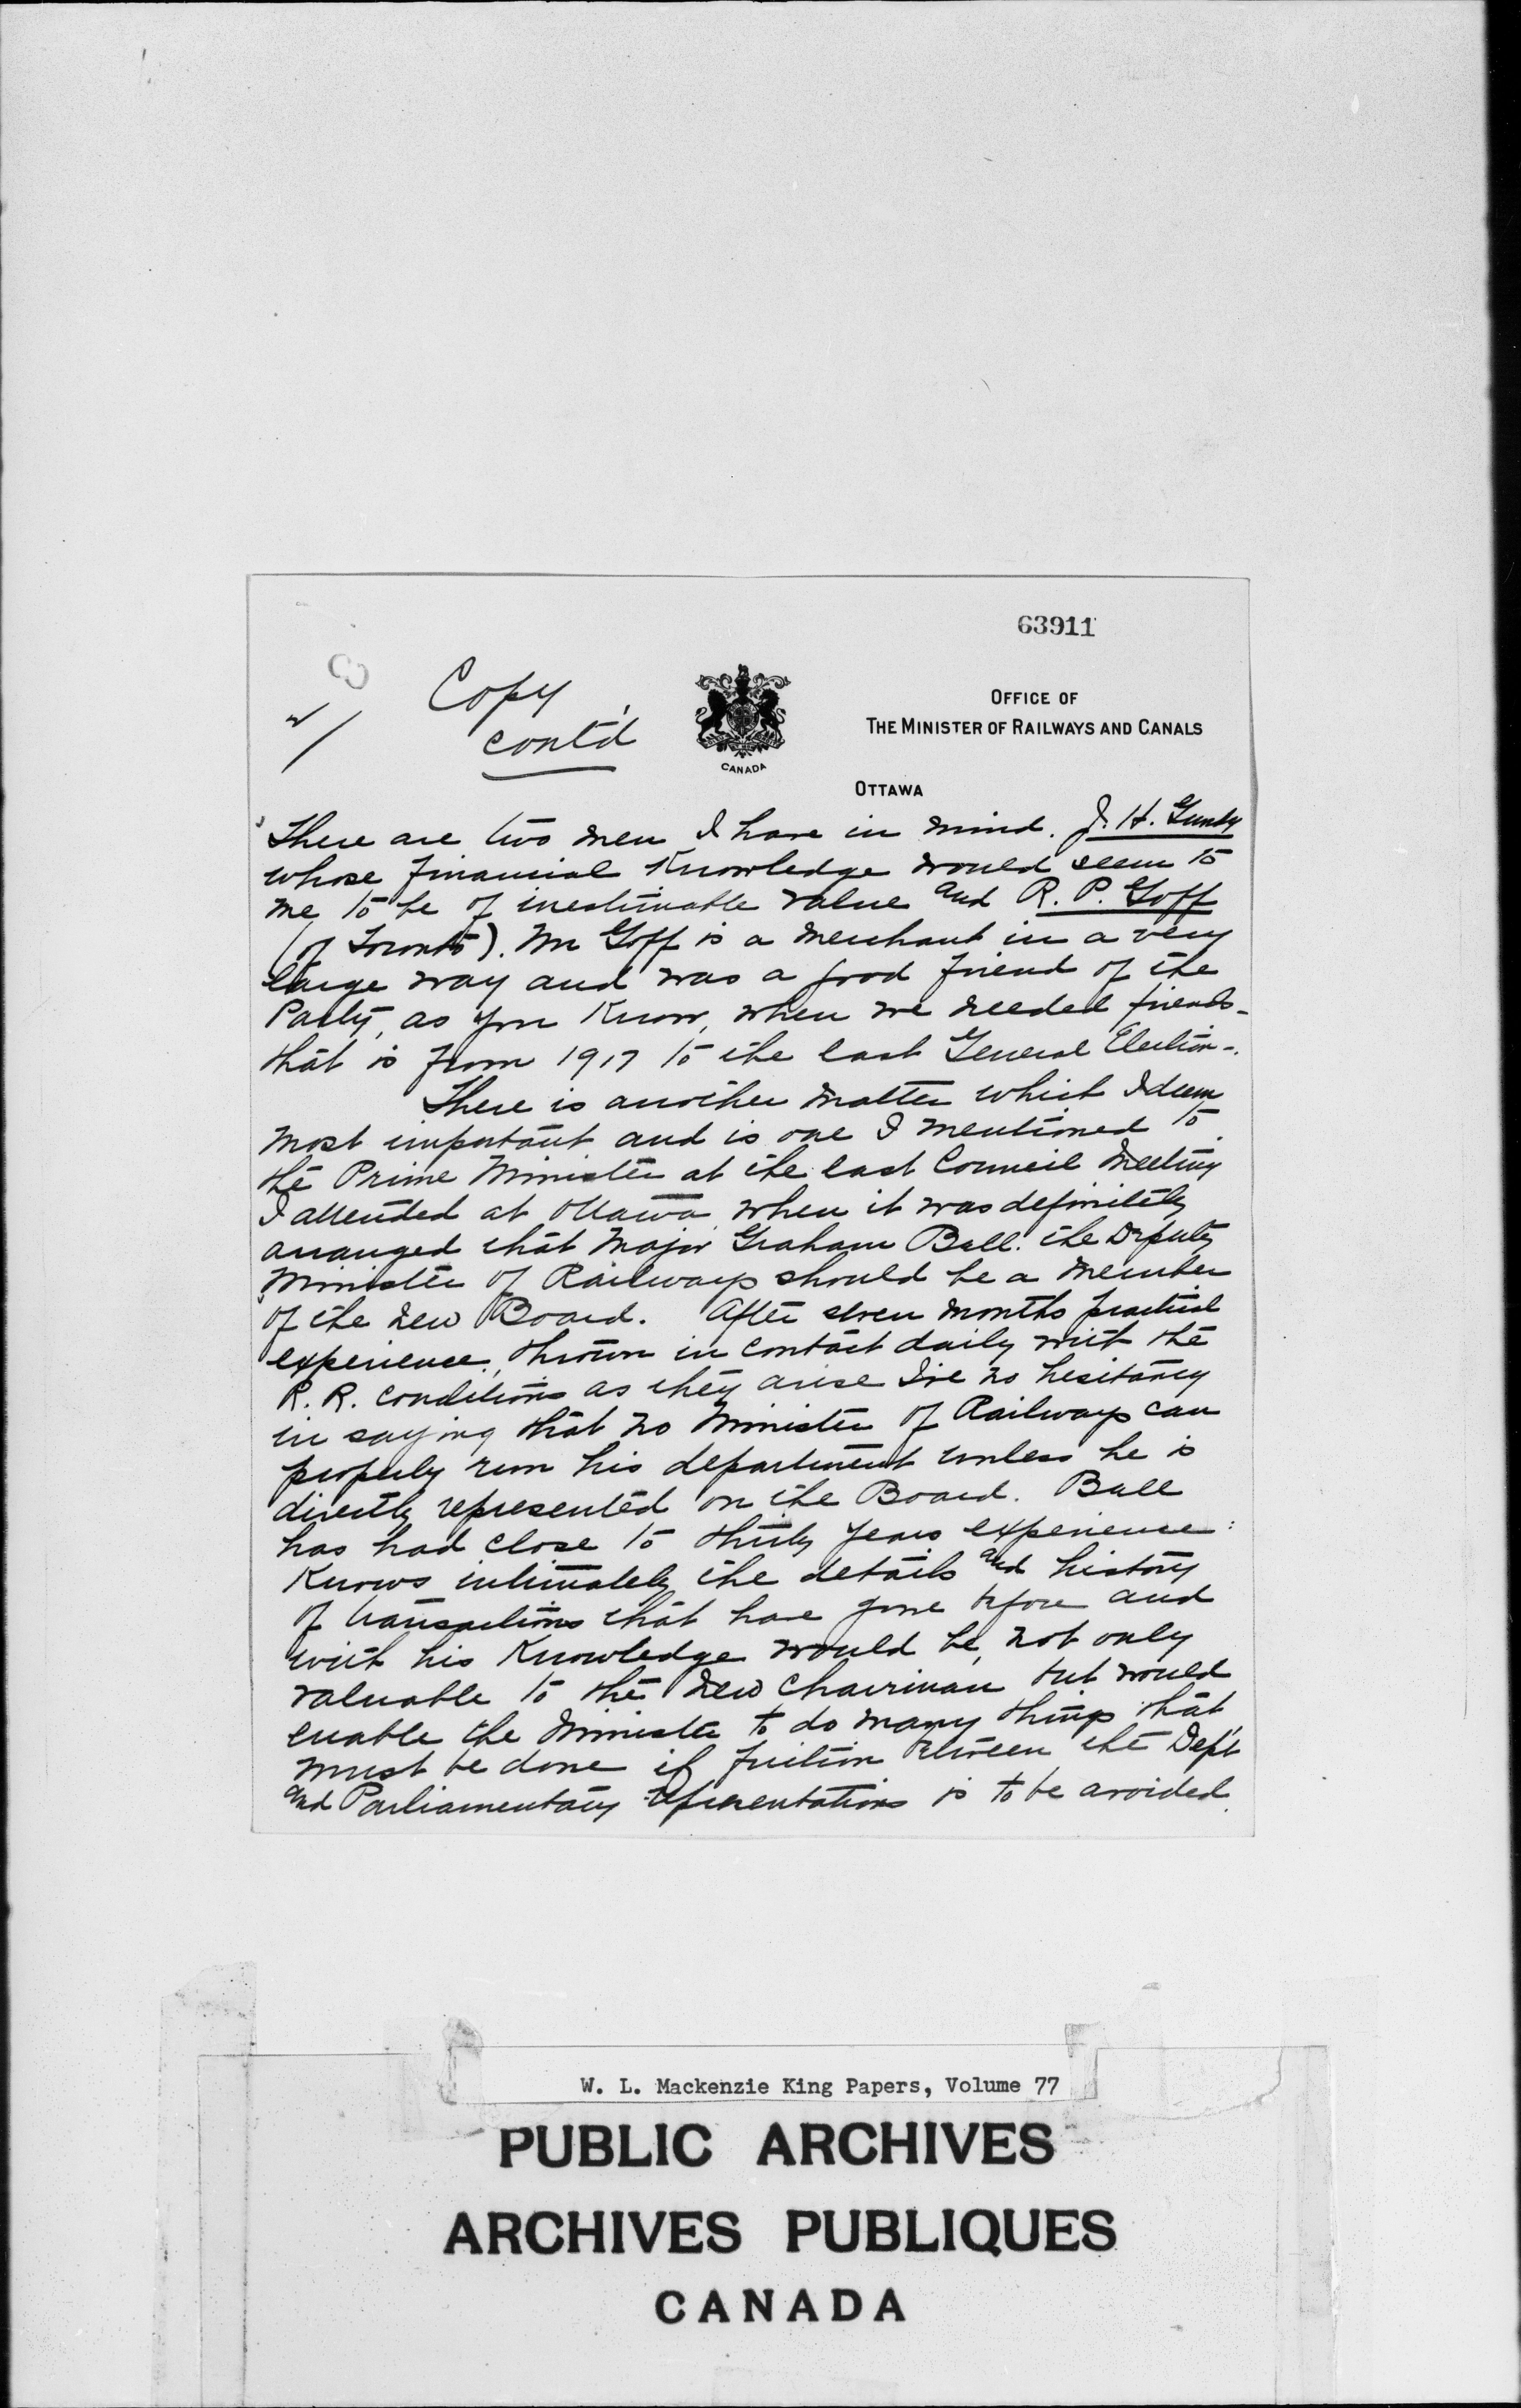 63911
Copy
cont'd
CANADA
OFFICE OF
THE MINISTER OF RAILWAYS AND CANALS
OTTAWA
There are two men I have in mind. J. H. Gundy
whose financial knowledge would seem to
me to be of inestimable value and R. P. Goff
(of Toronto). Mr Goff is a merchant in a very
large way and was a good friend of the
Party, as you know, when we needed friends -
that is from 1917 to the last General Election -.
There is another matter which I deem
most important and is one I mentioned to
the Prime Minister at the last Council Meeting
I attended at Ottawa when it was definitely
arranged that Major Graham Bell the Deputy
Minister of Railways should be a member
of the new Board. After seven months practical
experience, thrown in contact daily with the
R. R. conditions as they arise I've no hesitancy
in saying that no Minister of Railways can
properly run his department unless he is
directly represented on the Board. Bell
has had close to thirty years experience:
Knows intimately the details and history
of transactions that have gone before and
with his knowledge would be, not only
valuable to the new chairman but would
enable the Minister to do many things that
must be done if friction between the Dept
and Parliamentary representations is to be avoided.
W. L. Mackenzie King Papers, Volume 77
PUBLIC ARCHIVES
ARCHIVES PUBLIQUES
CANADA